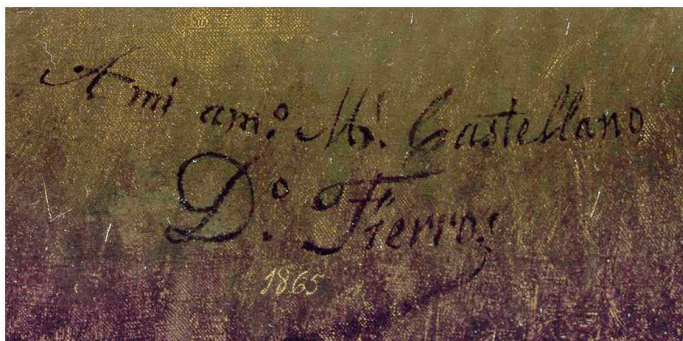 A mi am.º Ml. Castellano
D.º Fierros
1865